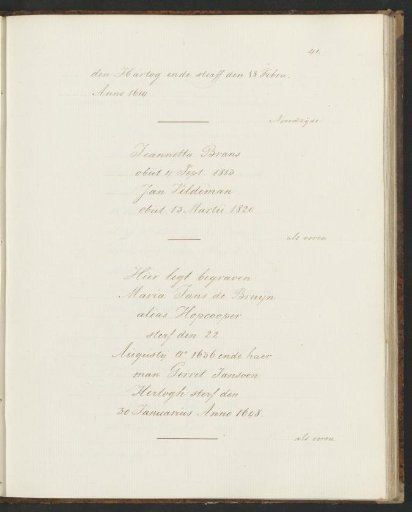 41.
den Hartog ende sterff den 13 Febru.
Anno 1610
Noordzijde
Jeannetta Brans
obiit 4 Sept. 1813
Jan Veldeman
obiit 13 Martii 1820
als voren
Hier legt begraven
Maria Jans de Bruyn
alias Hopcooper
sterf den 22
Augustij Ao 1636 ende haer
man Gerret Jansoen
Hertogh sterf den
30 Januarius Anno 1608.
als voren